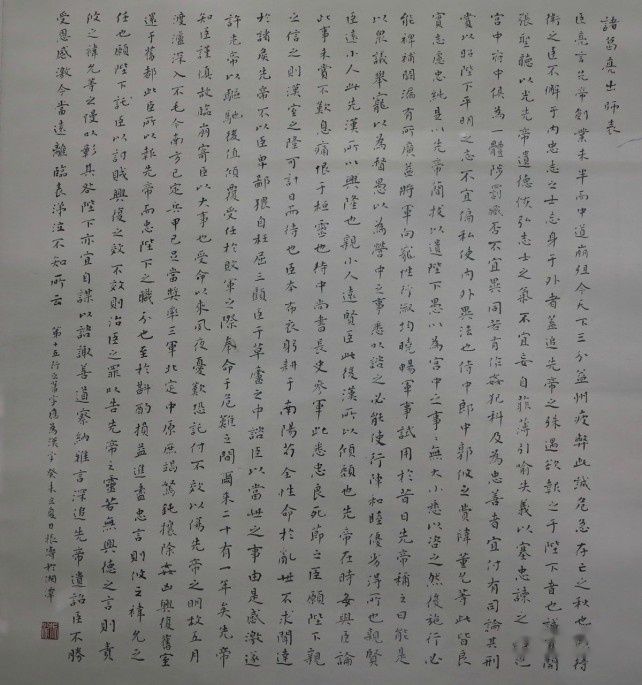 諸葛亮出師表
臣亮言先帝創業未半而中道崩殂今天下三分益州疲弊此誠危急存亡之秋也然侍
衛之臣不懈于內忠志之士忘身于外者蓋追先帝之殊遇欲報之于陛下者也誠宜開
張聖聽以光先帝遺德恢弘志士之氣不宜妄自菲薄引喻失義以塞忠諫之也
宮中府中俱為一體陟罰臧否不宜異同若有作姦犯科及為忠善者宜付有司論其刑
賞以昭陛下平明之志不宜偏私使內外異法也侍中郎中郭攸之費禕董允等此皆良
實志慮忠純是以先帝簡拔以遺陛下愚以為宮中之事事無大小悉以咨之然後施行必
能裨補闕漏有所廣益將軍向寵性行淑均曉暢軍事試用於昔日先帝稱之曰能是
以眾議舉寵以為督愚以為營中之事悉以諮之必能使行陣和睦優劣得所也親賢
臣遠小人此先漢所以興隆也親小人遠賢臣此後漢所以傾頹也先帝在時每與臣論
此事未嘗不歎息痛恨于桓靈也侍中尚書長史參軍此悉忠良死節之臣願陛下親
之信之則漢室之隆可計日而待也臣本布衣躬耕于南陽苟全性命於亂世不求聞達
於諸侯先帝不以臣卑鄙猥自枉屈三顧臣于草廬之中諮臣以當世之事由是感激遂
許先帝以驅馳後值傾覆受任於敗軍之際奉命于危難之間爾來二十有一年矣先帝
知臣謹慎故臨崩寄臣以大事也受命以來夙夜憂歎恐託付不效以傷先帝之明故五月
渡瀘深入不毛今南方已定兵甲已足當獎率三軍北定中原庶竭駑鈍攘除姦凶興復舊室
還于舊都此臣所以報先帝而忠陛下之職分也至於斟酌損益進盡忠言則攸之禕允之
任也願陛下託臣以討賊興復之效不效則治臣之罪以告先帝之靈若無興德之言則責
攸之禕允等之慢以彰其咎陛下亦宜自謀以諮諏善道察納雅言深追先帝遺詔臣不勝
受恩感激今當遠離臨表涕泣不知所云 第十五行舊字應為漢字 癸未夏日振於湘潭